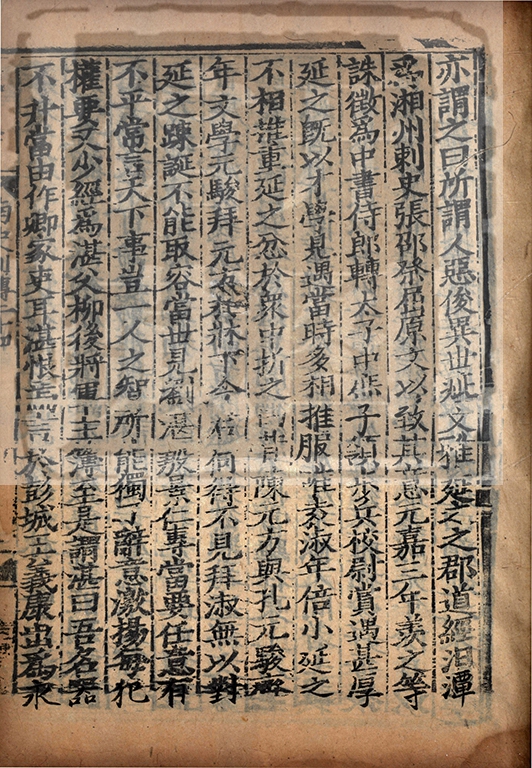 亦謂之曰所謂人惡俊異世疵文雅延之之郡道經汨潭
爲湘州刺史張邵祭屈原文以致其意元嘉三年羨之等
誅徵爲中書侍郎轉太子中庶子領步兵校尉賞遇甚厚
延之旣以才學見遇當時多相推服唯袁淑年倍小延之
不相推重延之忿於衆中折之曰昔陳元方與孔元駿齊
年文學元駿拜元方於牀下今君何得不見拜淑無以對
延之疎誕不能取容當世見劉湛殷景仁專當要任意有
不平常言天下事豈一人之智所能獨了辭意激揚每犯
權要又少經爲湛父柳後將軍主簿至是謂湛曰吾名器
不升當由作卿家吏耳湛恨焉言於彭城王義康出爲永